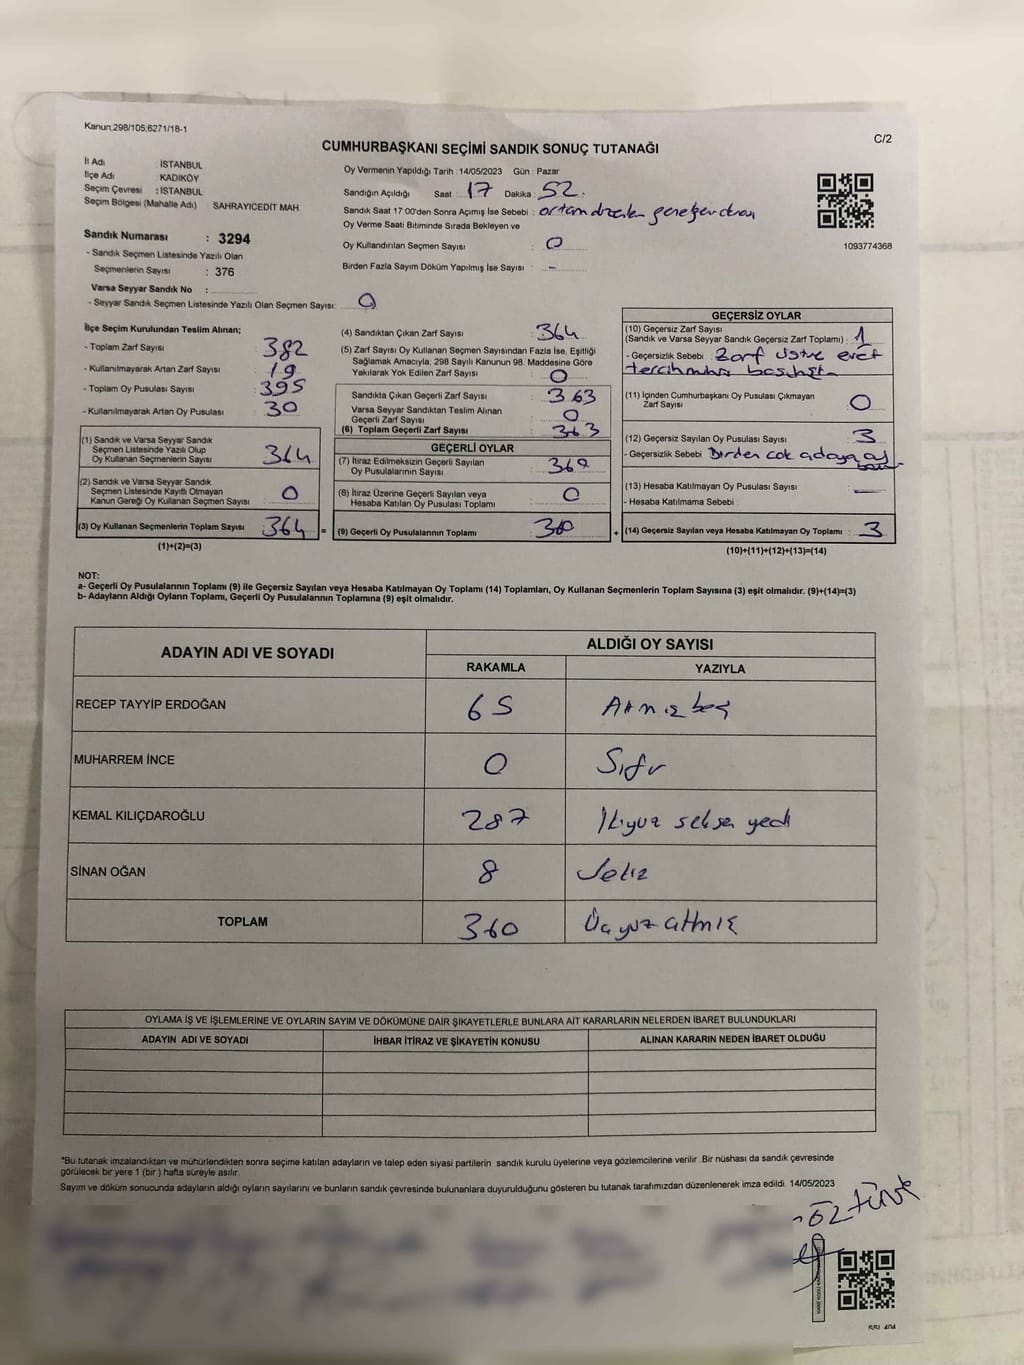 Kanun;298/105,6271/18-1
C/2
CUMHURBAŞKANI SEÇİMİ SANDIK SONUÇ TUTANAĞI
İl Adı İSTANBUL
İlçe Adı KADIKÖY
Seçim Çevresi : İSTANBUL
Seçim Bölgesi (Mahalle Adı) SAHRAYICEDİT MAH.
Sandık Numarası : 3294
- Sandık Seçmen Listesinde Yazılı Olan
Seçmenlerin Sayısı : 376
Varsa Seyyar Sandık No :
- Seyyar Sandık Seçmen Listesinde Yazılı Olan Seçmen Sayısı: 0
Oy Vermenin Yapıldığı Tarih : 14/05/2023 Gün : Pazar
Sandığın Açıldığı Saat : 17 Dakika : 52
Sandık Saat 17.00'den Sonra Açımış İse Sebebi :
Oy Verme Saati Bitiminde Sırada Bekleyen ve
Oy Kullandırılan Seçmen Sayısı : 0
Birden Fazla Sayım Döküm Yapılmış İse Sayısı : -
1093774368
İlçe Seçim Kurulundan Teslim Alınan;
- Toplam Zarf Sayısı : 382
- Kullanılmayarak Artan Zarf Sayısı : 19
- Toplam Oy Pusulası Sayısı : 395
- Kullanılmayarak Artan Oy Pusulası : 30
(1) Sandık ve Varsa Seyyar Sandık
Seçmen Listesinde Yazılı Olup
Oy Kullanan Seçmenlerin Sayısı : 364
(2) Sandık ve Varsa Seyyar Sandık
Seçmen Listesinde Kayıtlı Olmayan
Kanun Gereği Oy Kullanan Seçmen Sayısı : 0
(3) Oy Kullanan Seçmenlerin Toplam Sayısı : 364
(1)+(2)=(3)
=
(4) Sandıktan Çıkan Zarf Sayısı : 364
(5) Zarf Sayısı Oy Kullanan Seçmen Sayısından Fazla İse, Eşitliği
Sağlamak Amacıyla; 298 Sayılı Kanunun 98. Maddesine Göre
Yakılarak Yok Edilen Zarf Sayısı : 0
Sandıkta Çıkan Geçerli Zarf Sayısı : 363
Varsa Seyyar Sandıktan Teslim Alınan
Geçerli Zarf Sayısı : 0
(6) Toplam Geçerli Zarf Sayısı : 363
GEÇERLİ OYLAR
(7) İtiraz Edilmeksizin Geçerli Sayılan
Oy Pusulalarının Sayısı : 360
(8) İtiraz Üzerine Geçerli Sayılan veya
Hesaba Katılan Oy Pusulası Toplamı : 0
(9) Geçerli Oy Pusulalarının Toplamı : 360
+
GEÇERSİZ OYLAR
(10) Geçersiz Zarf Sayısı
(Sandık ve Varsa Seyyar Sandık Geçersiz Zarf Toplamı) : 1
- Geçersizlik Sebebi : Zarf üstüne evet
basılmıştır
(11) İçinden Cumhurbaşkanı Oy Pusulası Çıkmayan
Zarf Sayısı : 0
(12) Geçersiz Sayılan Oy Pusulası Sayısı : 3
- Geçersizlik Sebebi Birden çok adaya oy
(13) Hesaba Katılmayan Oy Pusulası Sayısı : —
- Hesaba Katılmama Sebebi :
(14) Geçersiz Sayılan veya Hesaba Katılmayan Oy Toplamı : 3
(10)+(11)+(12)+(13)=(14)
NOT:
a- Geçerli Oy Pusulalarının Toplamı (9) ile Geçersiz Sayılan veya Hesaba Katılmayan Oy Toplamı (14) Toplamları, Oy Kullanan Seçmenlerin Toplam Sayısına (3) eşit olmalıdır. (9)+(14)=(3)
b- Adayların Aldığı Oyların Toplamı, Geçerli Oy Pusulalarının Toplamına (9) eşit olmalıdır.
ADAYIN ADI VE SOYADI
ALDIĞI OY SAYISI
RAKAMLA YAZIYLA
RECEP TAYYİP ERDOĞAN 65 Atmışbeş
MUHARREM İNCE 0 Sıfır
KEMAL KILIÇDAROĞLU 287 İkiyüz seksen yedi
SİNAN OĞAN 8 Sekiz
TOPLAM 360 Üçyüzatmış
OYLAMA İŞ VE İŞLEMLERİNE VE OYLARIN SAYIM VE DÖKÜMÜNE DAİR ŞİKAYETLERLE BUNLARA AİT KARARLARIN NELERDEN İBARET BULUNDUKLARI
ADAYIN ADI VE SOYADI İHBAR İTİRAZ VE ŞİKAYETİN KONUSU ALINAN KARARIN NEDEN İBARET OLDUĞU
*Bu tutanak imzalandıktan ve mühürlendikten sonra seçime katılan adayların ve talep eden siyasi partilerin sandık kurulu üyelerine veya gözlemcilerine verilir. Bir nüshası da sandık çevresinde
görülecek bir yere 1 (bir) hafta süreyle asılır.
Sayım ve döküm sonucunda adayların aldığı oyların sayılarını ve bunların sandık çevresinde bulunanlara duyurulduğunu gösteren bu tutanak tarafımızdan düzenlenerek imza edildi. 14/05/2023
ÖZTÜRK